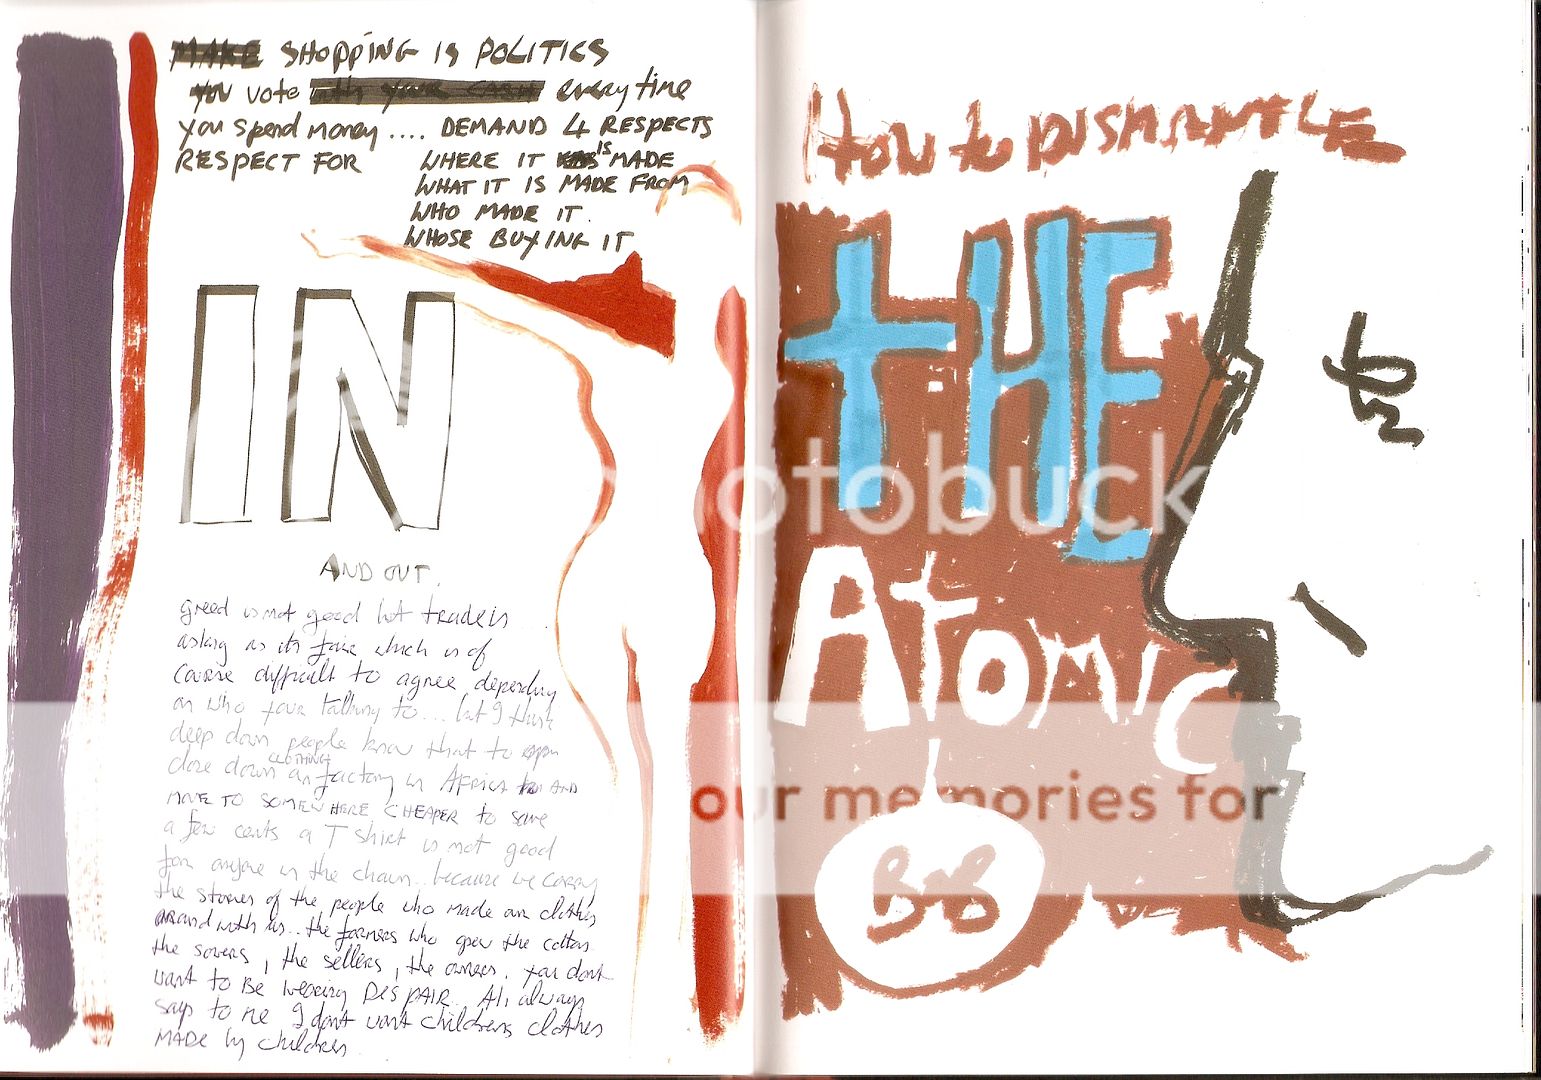 MAKE SHOPPING IS POLITICS
YOU vote with your CASH every time
you spend money .... DEMAND 4 RESPECTS
RESPECT FOR WHERE IT IS MADE
WHAT IT IS MADE FROM
WHO MADE IT.
WHOSE BUYING IT
IN
AND OUT.
greed is not good but trade is
asking as its fair which is of
course difficult to agree depending
on who your talking to... but I think
deep down people know that to
close down a CLOTHING factory in AFRICA AND
MOVE TO SOMEWHERE CHEAPER to save
a few cents a T shirt is not good
for anyone in the chain.. because we carry
the stories of the people who made our clothes
around with us.. the farmers who grew the cotton
the sowers, the sellers, the owners. you dont
want to BE wearing DESPAIR.. Ali always
says to me I dont want childrens clothes
MADE by children
How to DISMANTLE
THE
ATOMIC
BOB
photobucket
our memories for